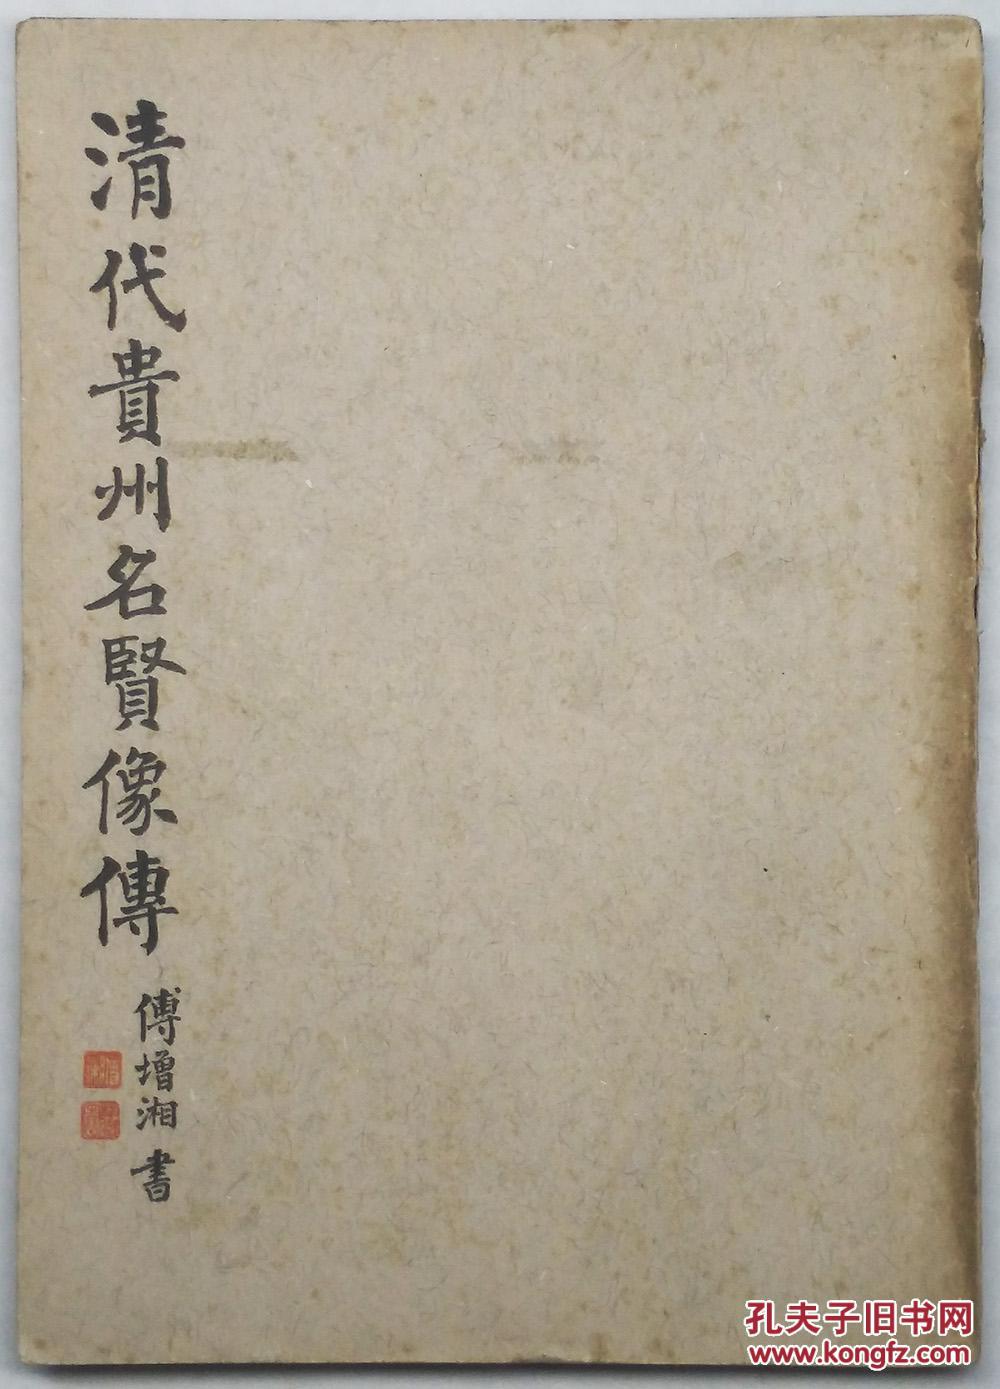 清代貴州名賢像傳
傅增湘書
孔夫子旧书网
www.kongfz.com